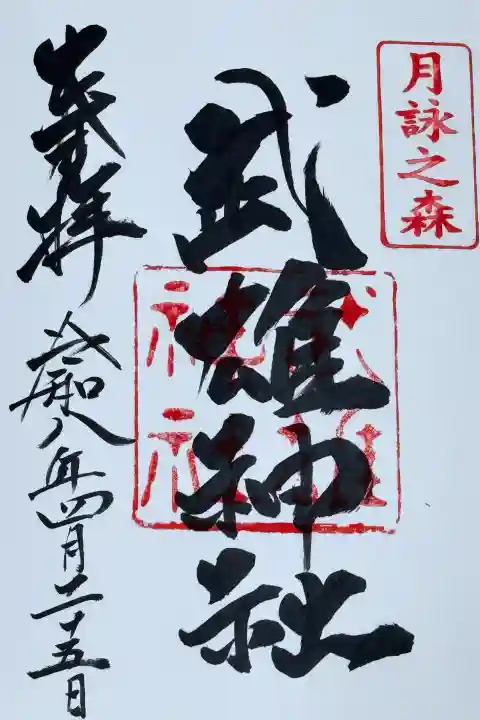 月詠之森
武雄神社
武雄
神社
奉拝
令和八年四月二十五日